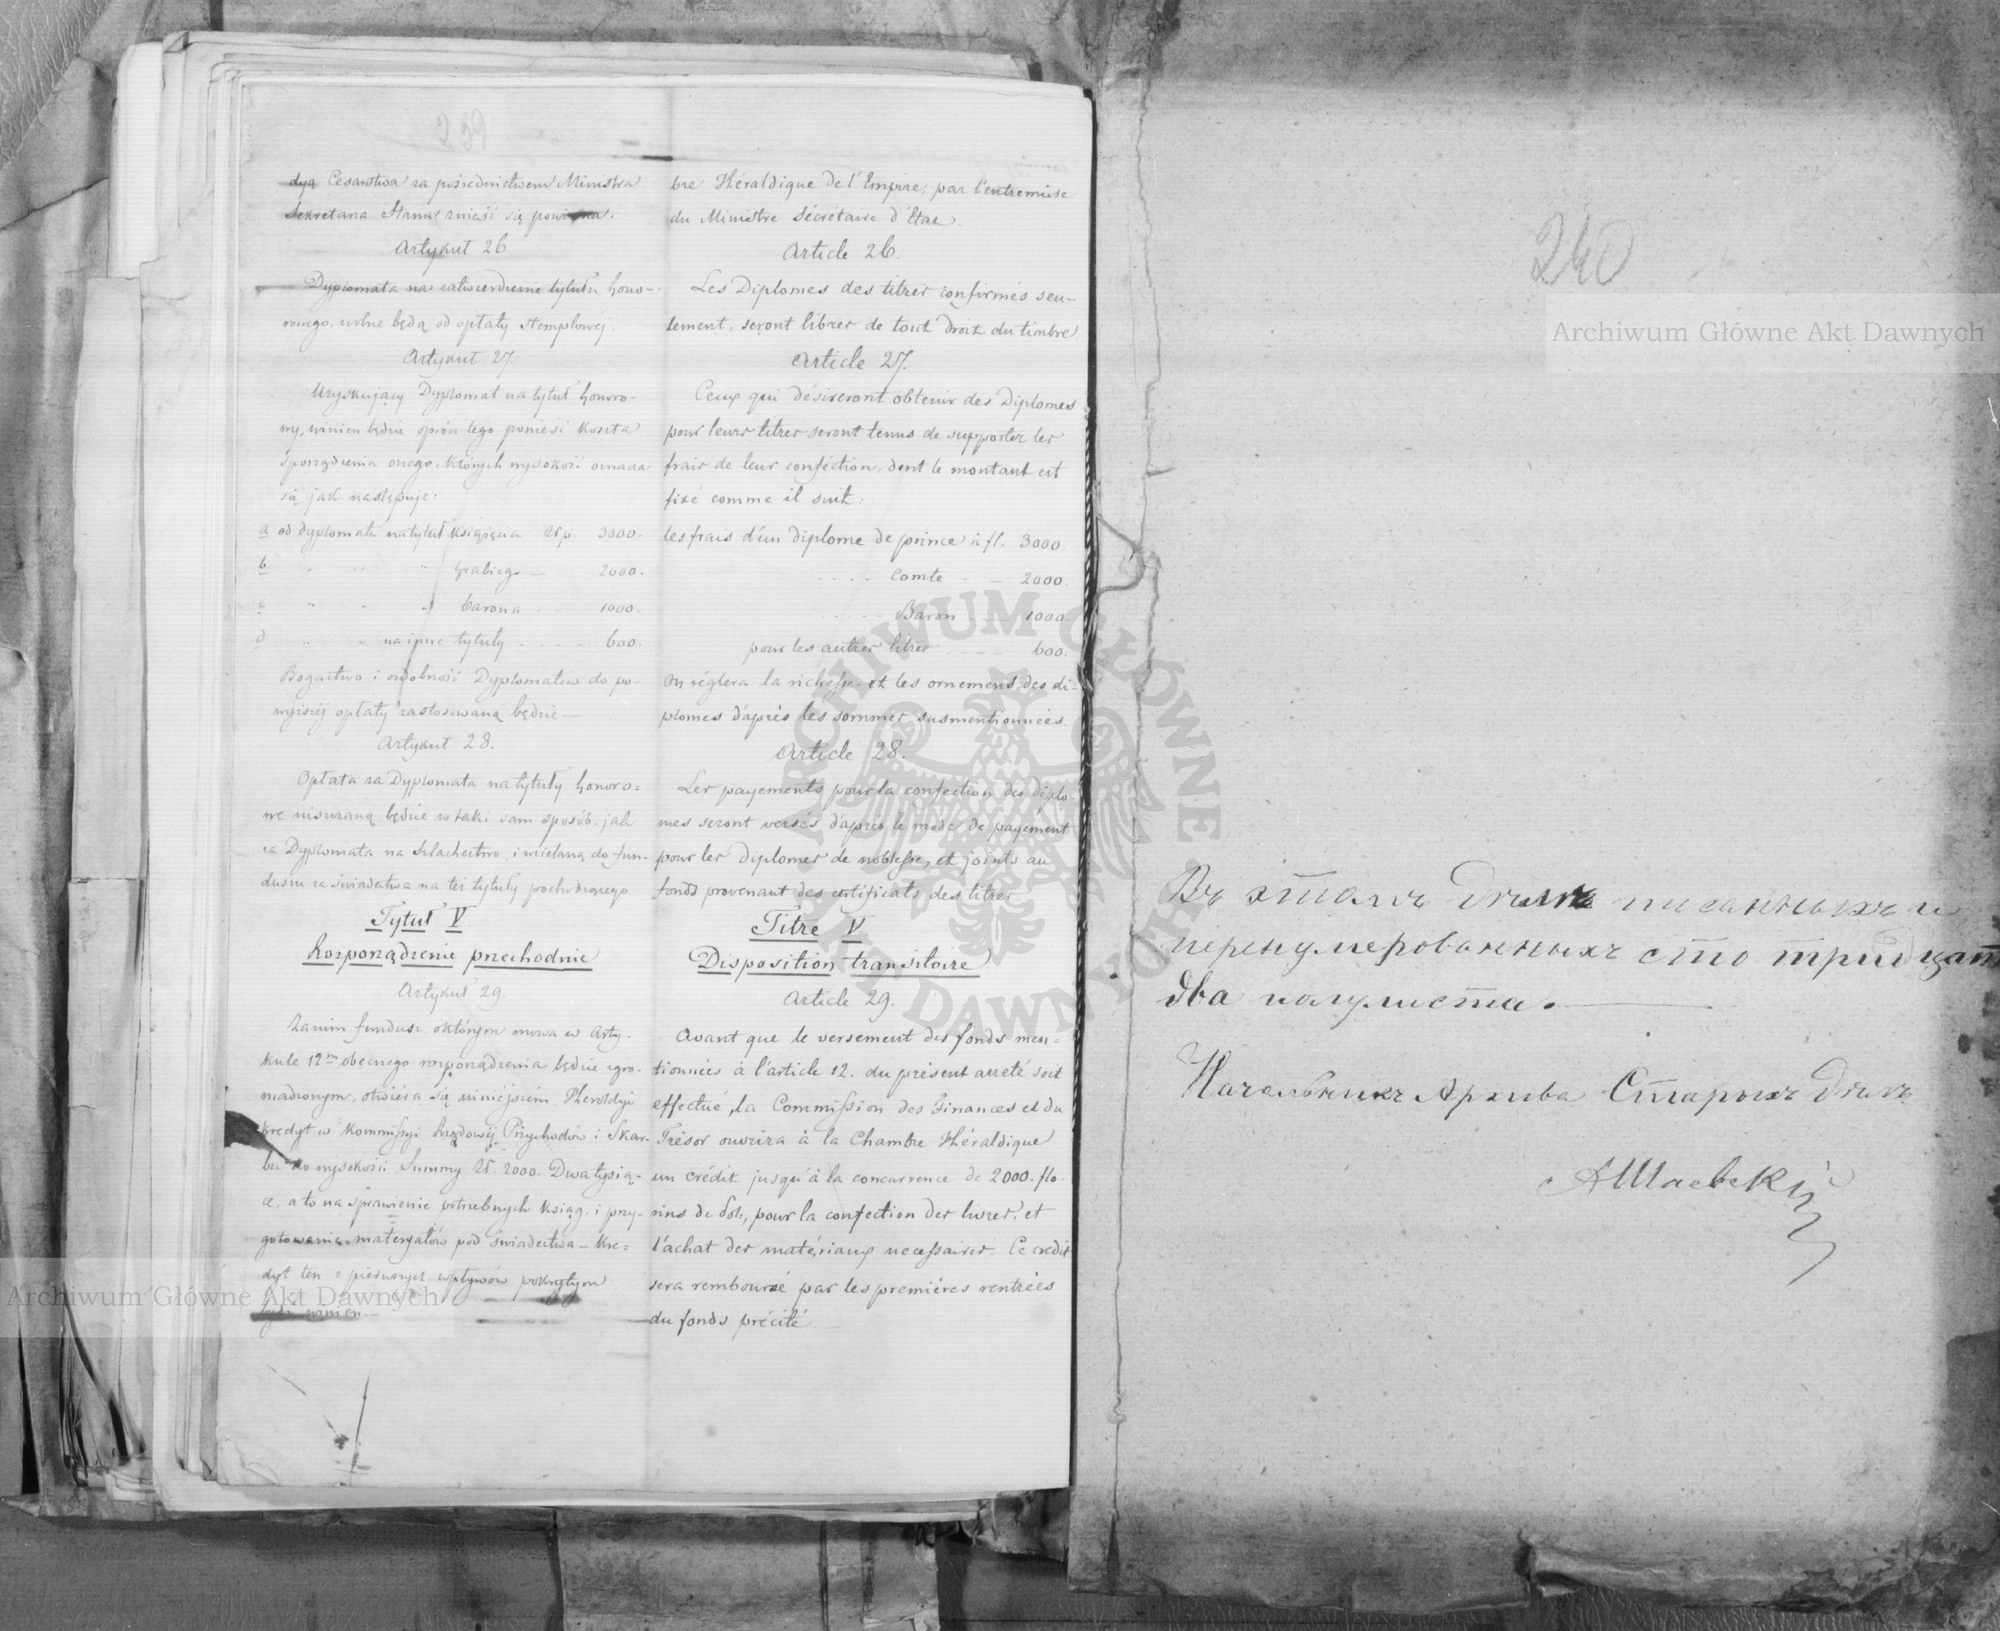 dyą Cesarstwa za pośrednictwem Ministra
Sekretarza Stanu znieść się powinna.
Artykuł 26
Dyplomata na zatwierdzenie tytułu hono-
rowego, wolne będą od opłaty stemplowéj.
Artykuł 27.
Uzyskujący Dyplomat na tytuł honoro-
wy, winien będzie oprócz tego ponieść koszta
sporządzenia onego, których wysokość oznacza
się jak następuje:
a od dyplomatu na tytuł Książęcia Złp. 3000.
b " " " Hrabiego — 2000.
c " " " Barona 1000.
d " " na inne tytuły 600.
Bogactwo i ozdobność Dyplomatów do po-
wyższéj opłaty zastosowaną będzie —
Artykuł 28.
Opłata za Dyplomata na tytuły honoro=
we uiszczaną będzie w taki sam sposób, jak
za Dyplomata na Szlachectwo, i wcielaną do fun-
duszu ze świadectwa na też tytuły pochodzącego
Tytuł V
Rozporządzenie przechodnie
Artykuł 29.
Zanim fundusz o którym mowa w Arty-
kule 12m obecnego rozporządzenia będzie zgro-
madzonym, otwiera się niniejszém Heroldyi
kredyt w Kommissyi Rządowéj Przychodów i Skar-
bu do wysokości Summy Zł. 2000. Dwa tysią-
ce, a to na sprawienie potrzebnych Ksiąg i przy-
gotowanie materyałów pod świadectwa — Kre=
dyt ten z pierwszych wpływów pokrytym
być winien —
bre Héraldique de l'Empire, par l'entremise
du Ministre Sécrétaire d'État.
Article 26.
Les Diplomes des titres confirmés seu-
lement, seront libres de tout droit du timbre
Article 27.
Ceux qui désireront obtenir des Diplomes
pour leurs titres seront tenus de supporter les
frais de leur conféction, dont le montant est
fixé comme il suit:
les frais d'un diplome de prince à fl. 3000.
.... Comte — 2000.
.... Baron 1000
pour les autres titres .... 600.
On réglera la richesse et les ornemens des di-
plomes d'après les sommes susmentionnées.
Article 28.
Les payements pour la confection des diplo-
mes seront versés d'après le mode de payement
pour les diplomes de noblesse, et joints au
fonds provenant des certificats des titres
Titre V
Disposition transitoire
Article 29.
Avant que le versement des fonds men=
tionnées à l'article 12. du présent arrêté soit
effectué, la Commission des Finances et du
Trésor ouvrira à la Chambre Héraldique
un crédit jusqu'à la concurrence de 2000. flo-
rins de Pol., pour la confection des livres, et
l'achat des matériaux necessaires. Ce credit
sera remboursé par les premières rentrées
du fonds précité
240
Въ этомъ дѣлѣ писанныхъ и
перенумерованныхъ сто тридцать
два полулиста.
Начальникъ Архива Старыхъ Дѣлъ
Archiwum Główne Akt Dawnych
Archiwum Główne Akt Dawnych
ARCHIWUM GŁÓWNE AKT DAWNYCH